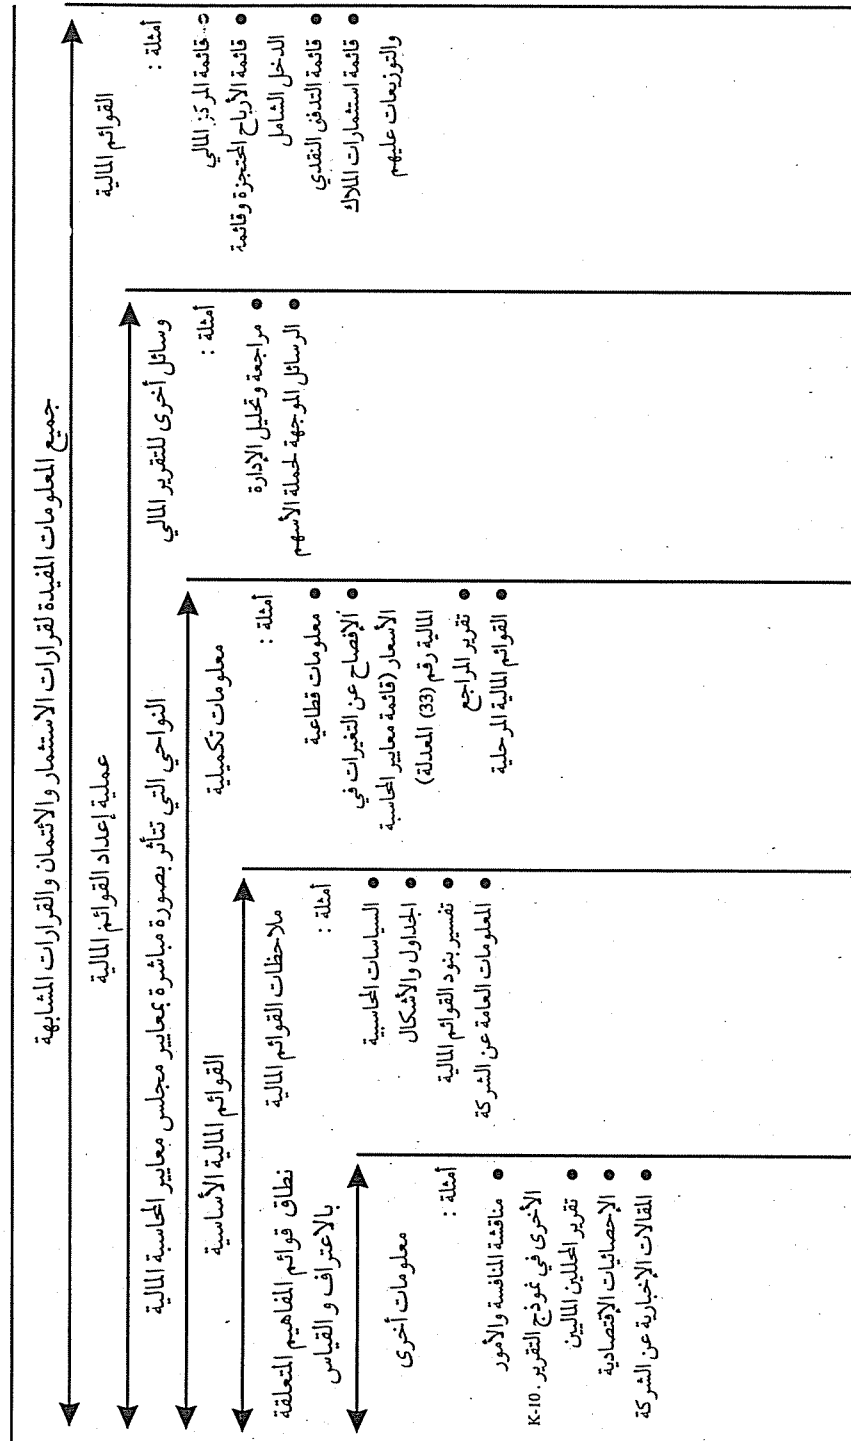 جميع المعلومات المفيدة لقرارات الاستثمار والائتمان والقرارات المشابهة
عملية إعداد القوائم المالية
النواحي التي تتأثر بصورة مباشرة بمعايير مجلس معايير المحاسبة المالية
القوائم المالية الأساسية
نطاق قوائم المفاهيم المتعلقة
بالاعتراف والقياس
القوائم المالية
أمثلة :
قائمة المركز المالي
• قائمة الأرباح المحتجزة وقائمة
الدخل الشامل
• قائمة التدفق النقدي
• قائمة استثمارات الملاك
والتوزيعات عليهم
وسائل أخرى للتقرير المالي
أمثلة :
• مراجعة وتحليل الإدارة
• الرسائل الموجهة لحملة الأسهم
معلومات تكميلية
أمثلة :
• معلومات قطاعية
• الإفصاح عن التغيرات في
الأسعار (قائمة معايير المحاسبة
المالية رقم (33) المعدلة)
• تقرير المراجع
• القوائم المالية المرحلية
ملاحظات القوائم المالية
أمثلة :
• السياسات المحاسبية
• الجداول والأشكال
• تفسير بنود القوائم المالية
• المعلومات العامة عن الشركة
معلومات أخرى
أمثلة :
• مناقشة المنافسة والأمور
الأخرى في نموذج التقرير K-10.
• تقرير المحللين الماليين
• الإحصائيات الإقتصادية
• المقالات الإخبارية عن الشركة